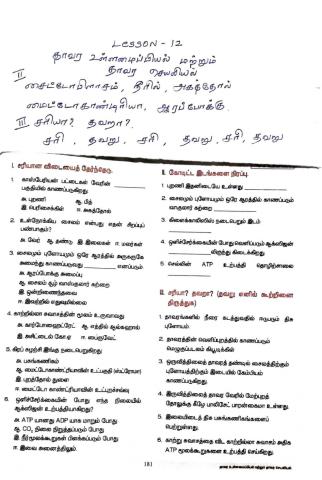 LESSON - 12
தாவர உள்ளமைப்பியல் மற்றும்
தாவர செயலியல்
II
சைட்டோபிளாசம், நீரில், அகத்தோல்
மைட்டோகாண்ட்ரியா, ஆரப்போக்கு.
III சரியா? தவறா?
சரி, தவறு, சரி, தவறு, சரி, தவறு
I. சரியான விடையைத் தேர்ந்தெடு.
1. காஸ்பேரியன் பட்டைகள் வேரின் ______ பகுதியில் காணப்படுகிறது.
அ. புறணி ஆ. பித்
இ. பெரிசைக்கிள் ஈ. அகத்தோல்
2. உள்நோக்கிய சைலம் என்பது எதன் சிறப்புப் பண்பாகும்?
அ. வேர் ஆ. தண்டு இ. இலைகள் ஈ. மலர்கள்
3. சைலமும் புளோயமும் ஒரே ஆரத்தில் அருகருகே அமைந்து காணப்படுவது ______ எனப்படும்
அ. ஆரப்போக்கு அமைப்பு
ஆ. சைலம் சூழ் வாஸ்குலார் கற்றை
இ. ஒன்றிணைந்தவை
ஈ. இவற்றில் எதுவுமில்லை
4. காற்றில்லா சுவாசத்தின் மூலம் உருவாவது
அ. கார்போஹைட்ரேட் ஆ. எத்தில் ஆல்கஹால்
இ. அசிட்டைல் கோ ஏ ஈ. பைருவேட்
5. கிரப் சுழற்சி இங்கு நடைபெறுகிறது
அ. பசுங்கணிகம்
ஆ. மைட்டோகாண்ட்ரியாவின் உட்பகுதி (ஸ்ட்ரோமா)
இ. புறத்தோல் துளை
ஈ. மைட்டோ காண்ட்ரியாவின் உட்புறச்சவ்வு
6. ஒளிச்சேர்க்கையின் போது எந்த நிலையில் ஆக்ஸிஜன் உற்பத்தியாகிறது?
அ. ATP யானது ADP யாக மாறும் போது
ஆ. CO₂ நிலை நிறுத்தப்படும் போது
இ. நீர்மூலக்கூறுகள் பிளக்கப்படும் போது
ஈ. இவை அனைத்திலும்.
II. கோடிட்ட இடங்களை நிரப்பு.
1. புறணி இதனிடையே உள்ளது ______
2. சைலமும் புளோயமும் ஒரே ஆரத்தில் காணப்படும் வாஸ்குலார் கற்றை ______
3. கிளைக்காலிஸிஸ் நடைபெறும் இடம் ______
4. ஒளிச்சேர்க்கையின் போது வெளிப்படும் ஆக்ஸிஜன் ______ லிருந்து கிடைக்கிறது.
5. செல்லின் ATP உற்பத்தி தொழிற்சாலை ______
III. சரியா? தவறா? (தவறு எனில் கூற்றினை திருத்துக)
1. தாவரங்களில் நீரை கடத்துவதில் ஈடுபடும் திசு புளோயம்.
2. தாவரத்தின் வெளிப்புறத்தில் காணப்படும் மெழுகுப்படலம் கியூட்டிக்கிள்
3. ஒருவித்திலைத் தாவரத் தண்டில் சைலத்திற்கும் புளோயத்திற்கும் இடையில் கேம்பியம் காணப்படுகிறது.
4. இருவித்திலைத் தாவர வேரில் மேற்புறத் தோலுக்கு கீழே பாலிசேட் பாரன்கைமா உள்ளது.
5. இலையிடைத் திசு பசுங்கணிகங்களைப் பெற்றுள்ளது.
6. காற்று சுவாசத்தை விட காற்றில்லா சுவாசம் அதிக ATP மூலக்கூறுகளை உற்பத்தி செய்கிறது.
181
தாவர உள்ளமைப்பியல் மற்றும் தாவர செயலியல்